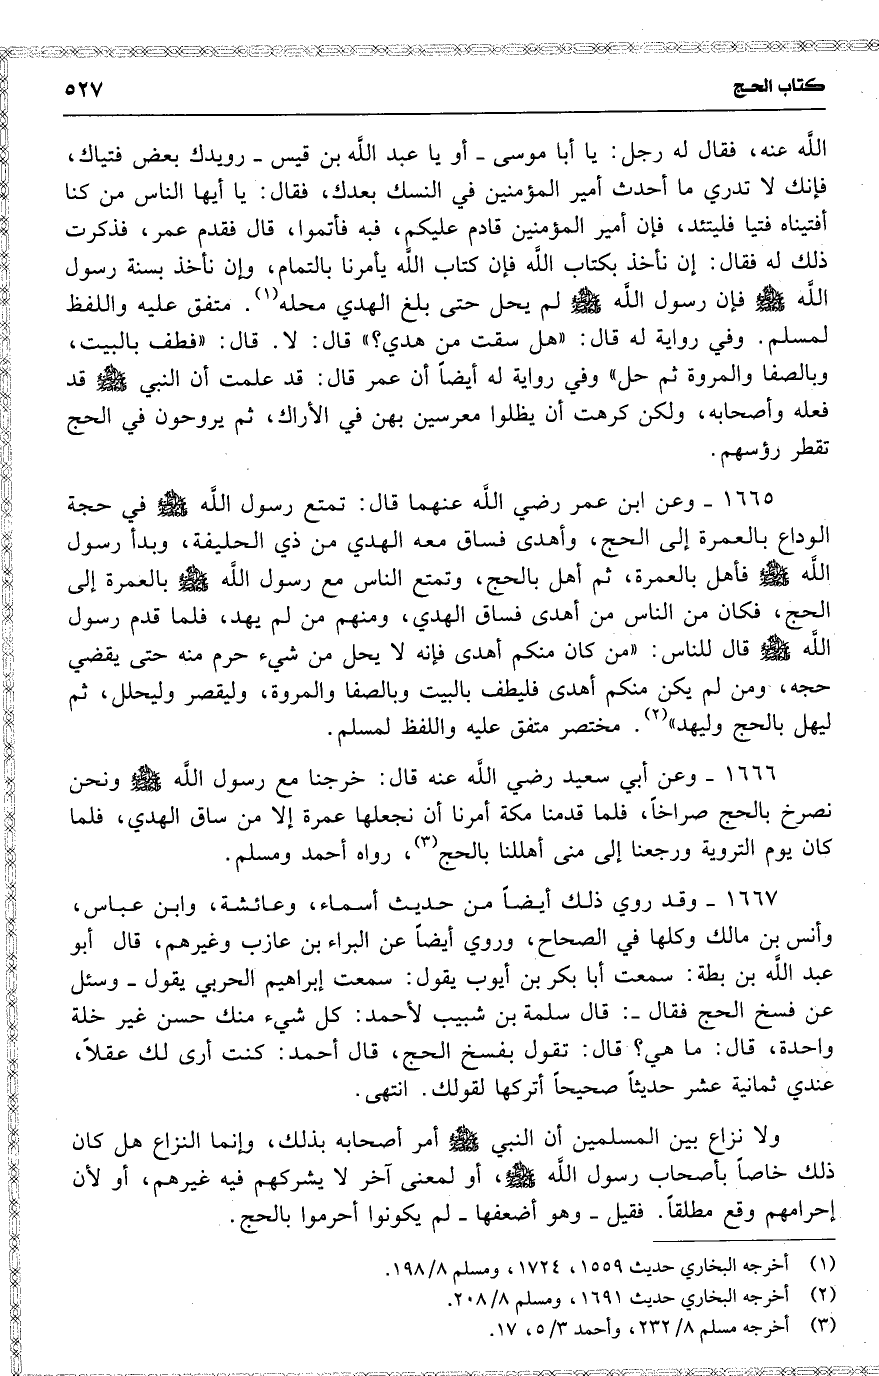 كتاب الحج
٥٢٧
اللَّه عنه، فقال له رجل: يا أبا موسى ـ أو يا عبد اللَّه بن قيس ـ رويدك بعض فتياك،
فإنك لا تدري ما أحدث أمير المؤمنين في النسك بعدك، فقال: يا أيها الناس من كنا
أفتيناه فتيا فليتئد، فإن أمير المؤمنين قادم عليكم، فبه فأتموا، قال فقدم عمر، فذكرت
ذلك له فقال: إن نأخذ بكتاب اللَّه فإن كتاب اللَّه يأمرنا بالتمام، وإن نأخذ بسنة رسول
اللَّه ﷺ فإن رسول اللَّه ﷺ لم يحل حتى بلغ الهدي محله(١). متفق عليه واللفظ
لمسلم. وفي رواية له قال: «هل سقت من هدي؟» قال: لا. قال: «فطف بالبيت،
وبالصفا والمروة ثم حل» وفي رواية له أيضاً أن عمر قال: قد علمت أن النبي ﷺ قد
فعله وأصحابه، ولكن كرهت أن يظلوا معرسين بهن في الأراك، ثم يروحون في الحج
تقطر رؤسهم.
١٦٦٥ ـ وعن ابن عمر رضي اللَّه عنهما قال: تمتع رسول اللَّه ﷺ في حجة
الوداع بالعمرة إلى الحج، وأهدى فساق معه الهدي من ذي الحليفة، وبدأ رسول
اللَّه ﷺ فأهل بالعمرة، ثم أهل بالحج، وتمتع الناس مع رسول اللَّه ﷺ بالعمرة إلى
الحج، فكان من الناس من أهدى فساق الهدي، ومنهم من لم يهد، فلما قدم رسول
اللَّه ﷺ قال للناس: «من كان منكم أهدى فإنه لا يحل من شيء حرم منه حتى يقضي
حجه، ومن لم يكن منكم أهدى فليطف بالبيت وبالصفا والمروة، وليقصر وليحلل، ثم
ليهل بالحج وليهد»(٢). مختصر متفق عليه واللفظ لمسلم.
١٦٦٦ ـ وعن أبي سعيد رضي اللَّه عنه قال: خرجنا مع رسول اللَّه ﷺ ونحن
نصرخ بالحج صراخاً، فلما قدمنا مكة أمرنا أن نجعلها عمرة إلا من ساق الهدي، فلما
كان يوم التروية ورجعنا إلى منى أهللنا بالحج(٣)، رواه أحمد ومسلم.
١٦٦٧ ـ وقد روي ذلك أيضاً من حديث أسماء، وعائشة، وابن عباس،
وأنس بن مالك وكلها في الصحاح، وروي أيضاً عن البراء بن عازب وغيرهم، قال أبو
عبد اللَّه بن بطة: سمعت أبا بكر بن أيوب يقول: سمعت إبراهيم الحربي يقول ـ وسئل
عن فسخ الحج فقال ـ: قال سلمة بن شبيب لأحمد: كل شيء منك حسن غير خلة
واحدة، قال: ما هي؟ قال: تقول بفسخ الحج، قال أحمد: كنت أرى لك عقلاً،
عندي ثمانية عشر حديثاً صحيحاً أتركها لقولك. انتهى.
ولا نزاع بين المسلمين أن النبي ﷺ أمر أصحابه بذلك، وإنما النزاع هل كان
ذلك خاصاً بأصحاب رسول اللَّه ﷺ، أو لمعنى آخر لا يشركهم فيه غيرهم، أو لأن
إحرامهم وقع مطلقاً. فقيل ـ وهو أضعفها ـ لم يكونوا أحرموا بالحج.
(١) أخرجه البخاري حديث ١٥٥٩، ١٧٢٤، ومسلم ١٩٨/٨.
(٢) أخرجه البخاري حديث ١٦٩١، ومسلم ٢٠٨/٨.
(٣) أخرجه مسلم ٢٣٢/٨، وأحمد ٥/٣، ١٧.